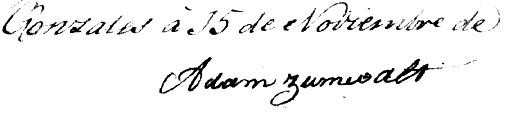 Gonzales à 15 de Noviembre de
Adam Zumwalt